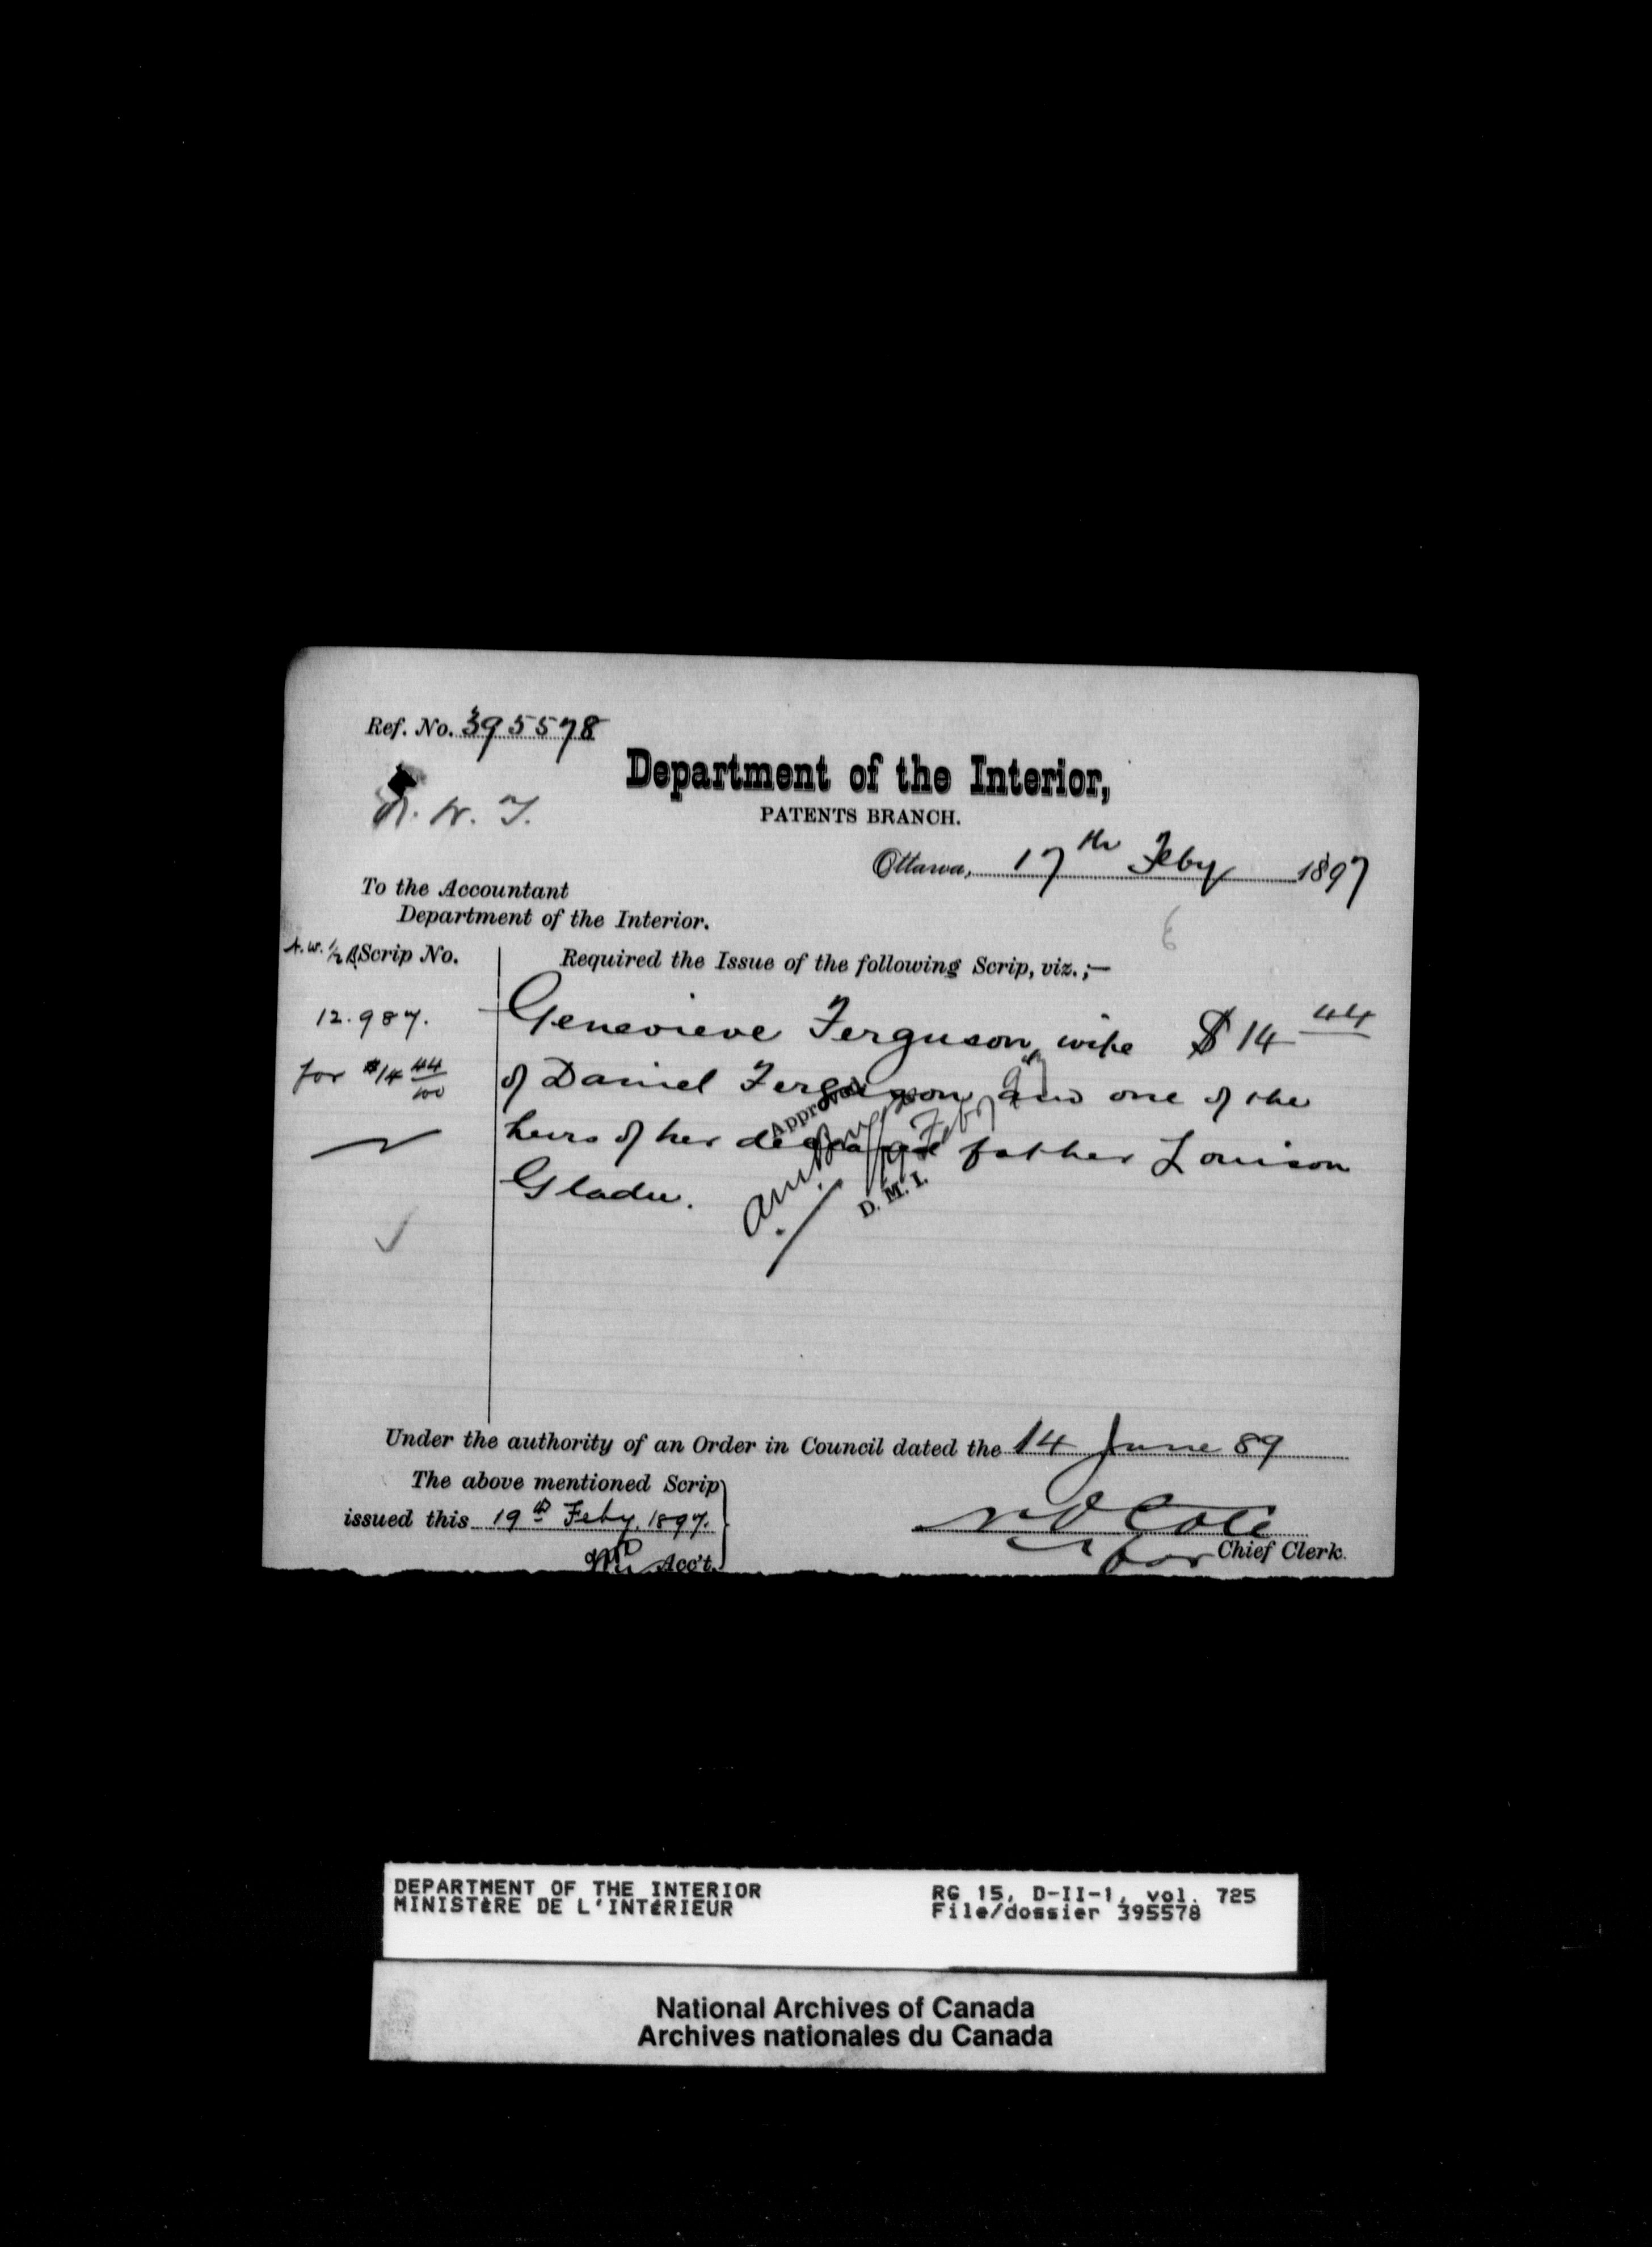 Ref. No. 395578
N. W. T.
Department of the Interior,
PATENTS BRANCH.
Ottawa, 17th Feby 1897
To the Accountant
Department of the Interior.
Scrip No.
Required the Issue of the following Scrip, viz.;—
12.987.
for $14 44/100
Genevieve Ferguson, wife $14 44
of Daniel Ferguson and one of the
heirs of her deceased father Louison
Gladu.
Approved
D. M. I.
Under the authority of an Order in Council dated the 14 June 89
The above mentioned Scrip
issued this 19th Feby. 1897.
Acc't.
N O Coté
for Chief Clerk.
DEPARTMENT OF THE INTERIOR
MINISTÈRE DE L'INTÉRIEUR
RG 15, D-II-1, vol. 725
File/dossier 395578
National Archives of Canada
Archives nationales du Canada